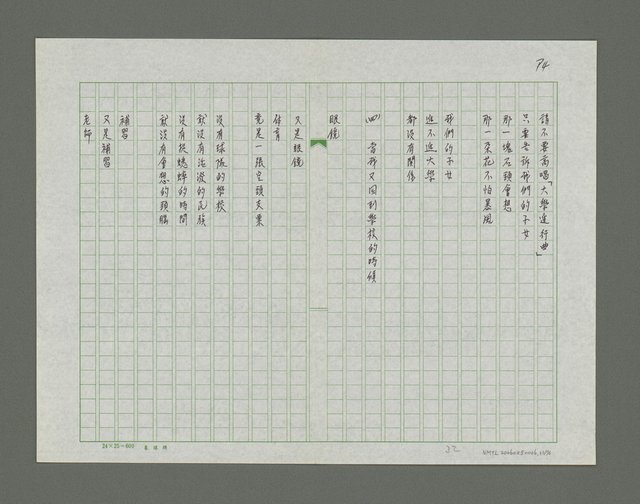 74
請不要高唱「大學進行曲」
只要告訴我們的子女
那一塊石頭會想
那一朵花不怕暴風
我們的子女
進不進大學
都沒有關係
(四) 當我又回到學校的時候
眼鏡
又是眼鏡
體育
竟是一張空頭支票
沒有操場的學校
就沒有活潑的民族
沒有捉蟋蟀的時間
就沒有會想的頭腦
補習
又是補習
老師
24×25=600